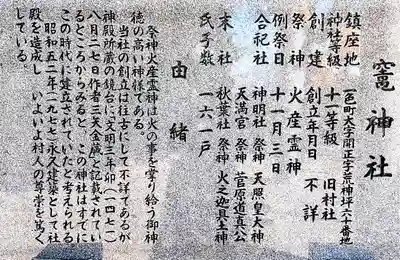 竈神社
鎮座地 一色町大字開正字荒神坪六十番地
神社等級 十一等級 旧村社
創建 創立年月日 不詳
祭神 火産霊神
例祭日 十一月三日
合祀社 神明社 祭神 天照皇大神
天満宮 祭神 菅原道真公
末社 秋葉社 祭神 火之迦具土神
氏子数 一六一戸
由緒
祭神火産霊神は火の事を掌り給う御神
徳の高い神様である。
当社の創立は往古にして不詳であるが
神殿所蔵の鏡台に文明三年卯(一四七一)
八月二七日作者三矢金蔵と記載されてい
るところからみると、この神社はすでに
この時代に建立されていたと考えられる
昭和五二年(一九七七)永久建築として社
殿を造成し、いよいよ村人の尊崇を篤く
している。